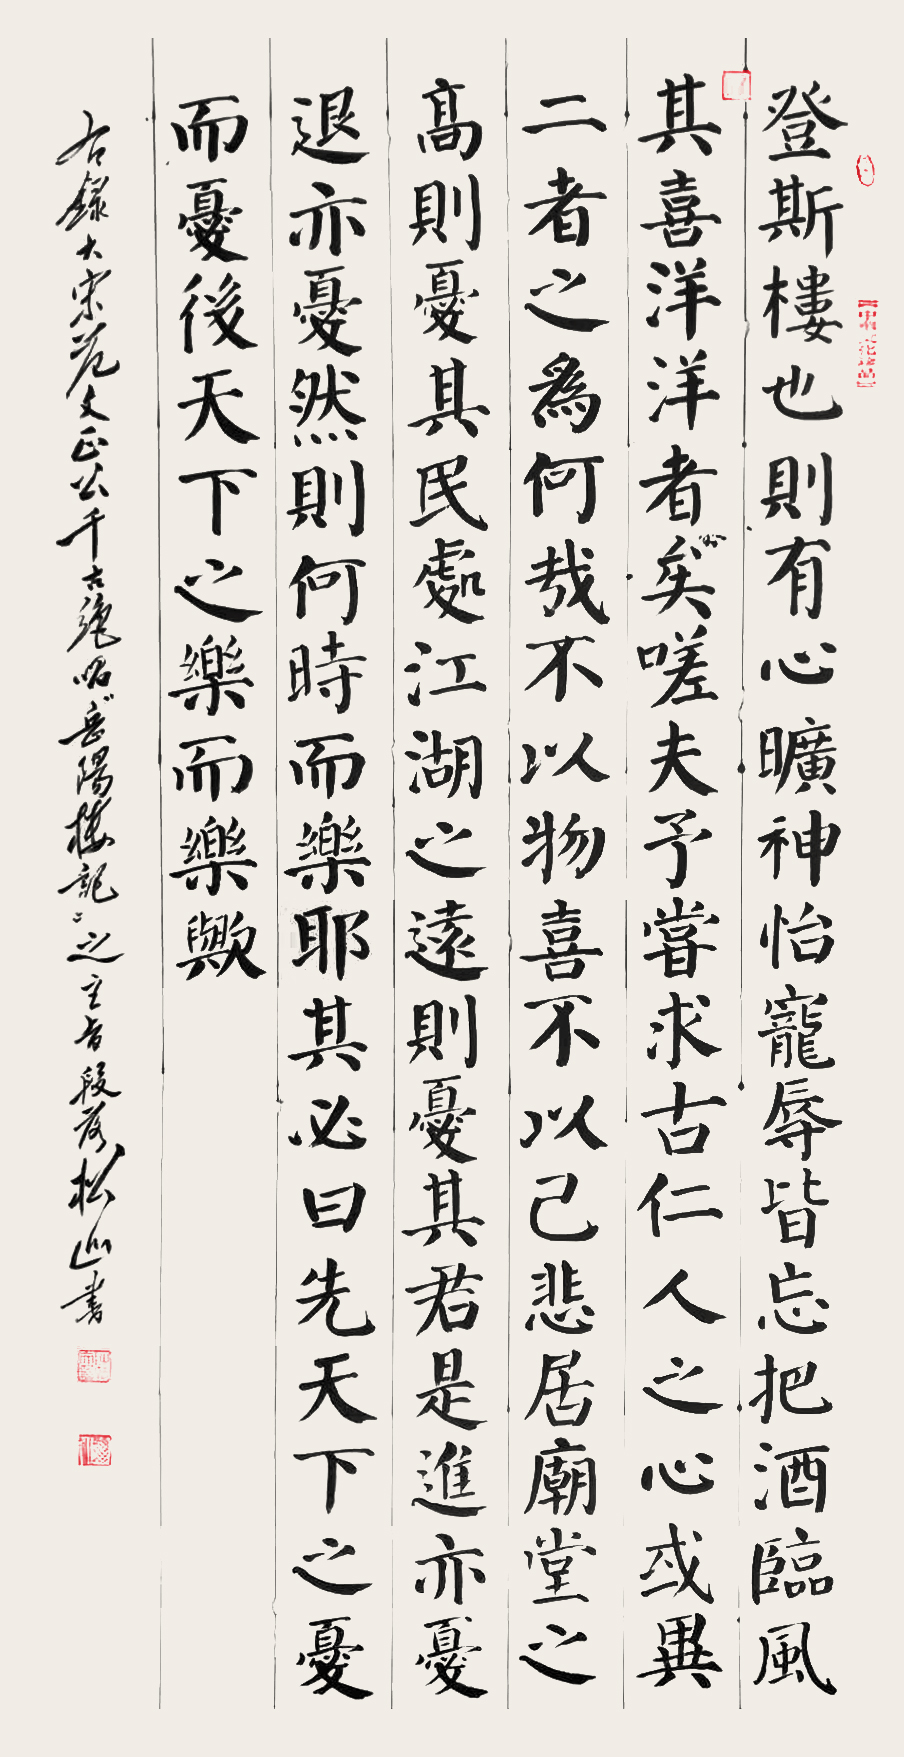 登斯樓也則有心曠神怡寵辱皆忘把酒臨風
其喜洋洋者矣嗟夫予嘗求古仁人之心或異
二者之爲何哉不以物喜不以己悲居廟堂之
高則憂其民處江湖之遠則憂其君是進亦憂
退亦憂然則何時而樂耶其必曰先天下之憂
而憂後天下之樂而樂歟
右録大宋范文正公千古絶唱岳陽樓記之主旨段落松山書